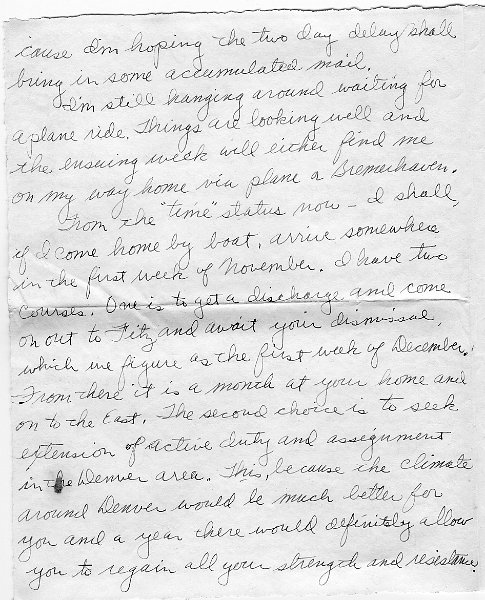 'cause I'm hoping the two day delay shall
bring in some accumulated mail.
I'm still hanging around waiting for
a plane ride. Things are looking well and
the ensuing week will either find me
on my way home via plane or Bremerhaven.
From the "time" status now - I shall,
if I come home by boat, arrive somewhere
in the first week of November. I have two
courses. One is to get a discharge and come
on out to Fitz and await your dismissal,
which we figure as the first week of December.
From there it is a month at your home and
on to the East. The second choice is to seek
extension of active duty and assignment
in the Denver area. This, because the climate
around Denver would be much better for
you and a year there would definitely allow
you to regain all your strength and resistance.